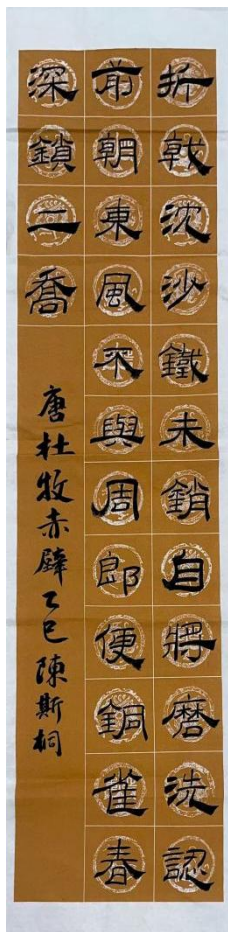 折戟沈沙鐵未銷自將磨洗認
前朝東風来與周郎便銅雀春
深鎖二喬
唐杜牧赤壁乙巳陳斯桐